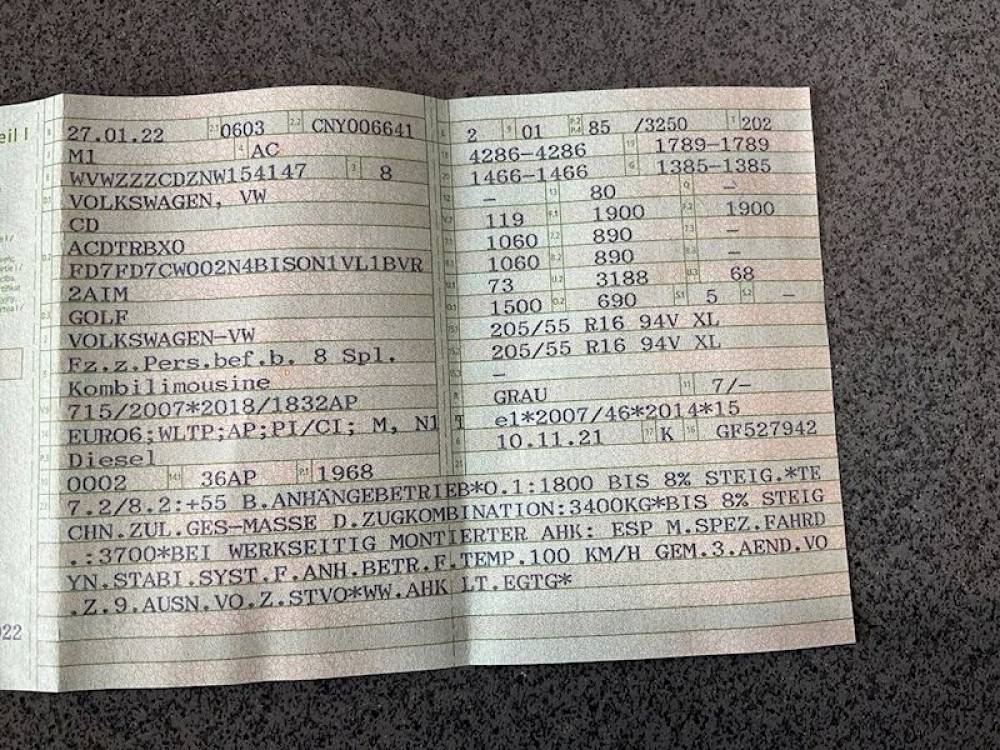 eil I
27.01.22 2.1 0603 2.2 CNY006641
M1 4 AC
WVWZZZCDZNW154147 3 8
VOLKSWAGEN, VW
CD
ACDTRBX0
FD7FD7CW002N4BISON1VL1BVR
2AIM
GOLF
VOLKSWAGEN-VW
Fz.z.Pers.bef.b. 8 Spl.
Kombilimousine
715/2007*2018/1832AP
EURO6;WLTP;AP;PI/CI; M, N1 I
Diesel
0002 14.1 36AP P.1 1968
2 9 01 P.2 P.4 85 /3250 T 202
18 4286-4286 19 1789-1789
20 1466-1466 G 1385-1385
12 – 13 80 Q –
V.7 119 F.1 1900 F.2 1900
7.1 1060 7.2 890 7.3 –
8.1 1060 8.2 890 8.3 –
U.1 73 U.2 3188 U.3 68
O.1 1500 O.2 690 S.1 5 S.2 –
15.1 205/55 R16 94V XL
15.2 205/55 R16 94V XL
15.3 –
R GRAU 11 7/–
K e1*2007/46*2014*15
6 10.11.21 17 K 16 GF527942
21
22 7.2/8.2:+55 B.ANHÄNGEBETRIEB*O.1:1800 BIS 8% STEIG.*TE
CHN.ZUL.GES-MASSE D.ZUGKOMBINATION:3400KG*BIS 8% STEIG
.:3700*BEI WERKSEITIG MONTIERTER AHK: ESP M.SPEZ.FAHRD
YN.STABI.SYST.F.ANH.BETR.F.TEMP.100 KM/H GEM.3.AEND.VO
.Z.9.AUSN.VO.Z.STVO*WW.AHK LT.EGTG*
022